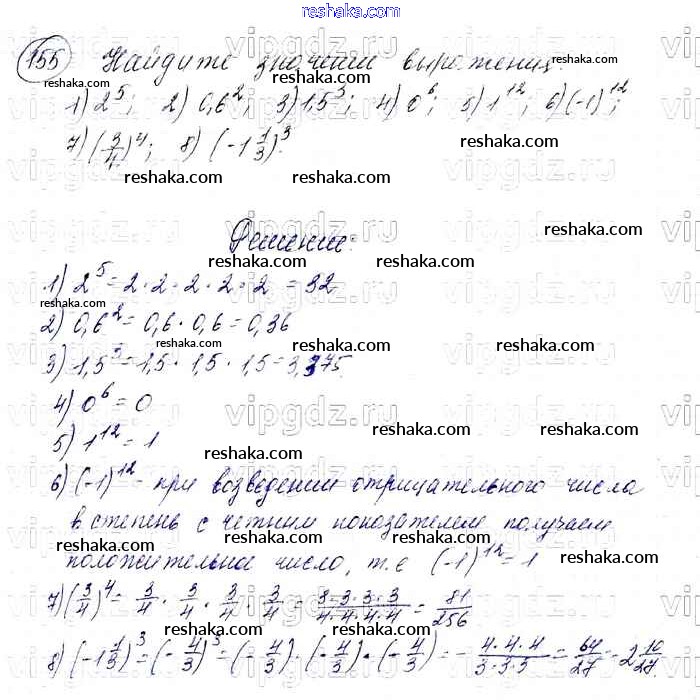 reshaka.com
155 Найдите значения выражений:
1) 2^5; 2) 0,6^2; 3) 1,5^3; 4) 0^6; 5) 1^12; 6) (-1)^12;
7) (3/4)^4; 8) (-1 1/3)^3
Решение:
1) 2^5 = 2 · 2 · 2 · 2 · 2 = 32
2) 0,6^2 = 0,6 · 0,6 = 0,36
3) 1,5^3 = 1,5 · 1,5 · 1,5 = 3,375
4) 0^6 = 0
5) 1^12 = 1
6) (-1)^12 - при возведении отрицательного числа
в степень с четним показателем получаем
положительное число, т.е (-1)^12 = 1
7) (3/4)^4 = 3/4 · 3/4 · 3/4 · 3/4 = 3·3·3·3/4·4·4·4 = 81/256
8) (-1 1/3)^3 = (-4/3)^3 = (-4/3) · (-4/3) · (-4/3) = - 4·4·4/3·3·3 = -64/27 = -2 10/27